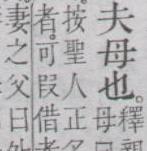 夫母也。釋親
母曰
按聖人正名
者。可叚借者
妻之父曰外